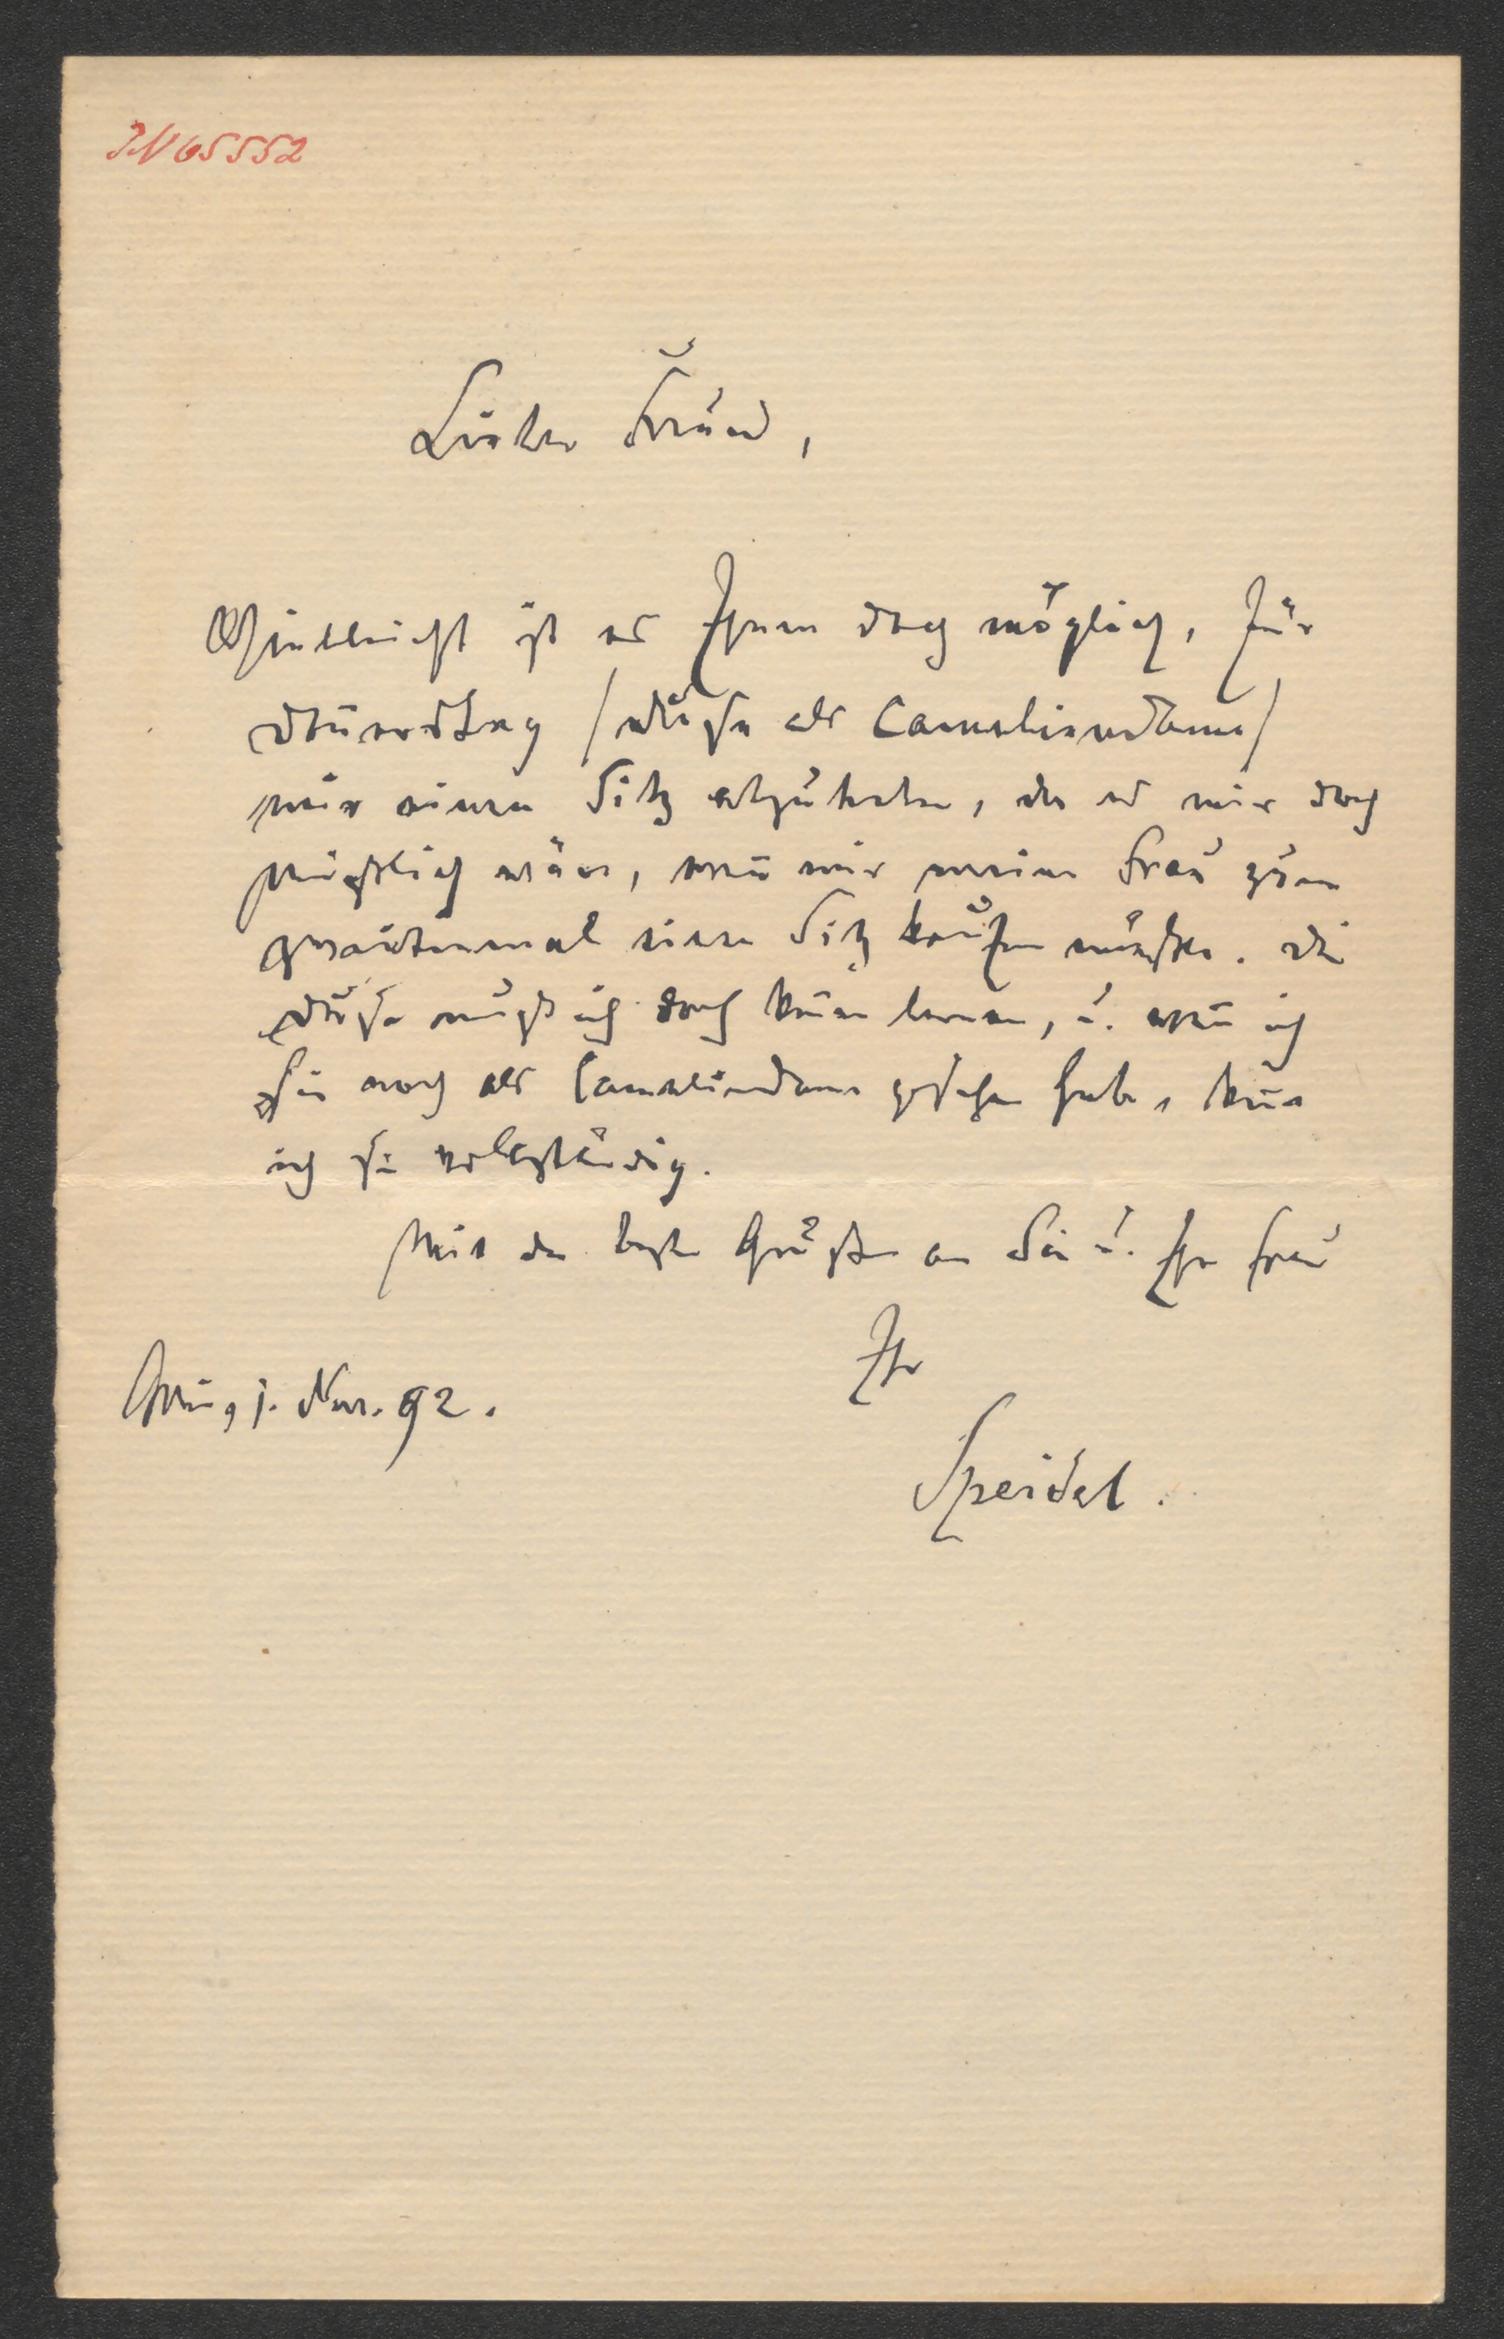 IN 65552
Lieber Freund,
Vielleicht ist es Ihnen doch möglich, für
Donnerstag /Duse als Cameliendame/
mir einen Sitz abzutreten, da es mir doch
peinlich wäre, wenn mir meine Frau zum
zweitenmal einen Sitz kaufen müßte. Die
Duse muß ich doch kennen lernen, u. wenn ich
sie noch als Cameliendame gesehen habe, kenne
ich sie vollständig.
Mit den besten Grüßen an Sie u. Ihre Frau
Ihr
Wien, 1. Nov. 92.
Speidel.